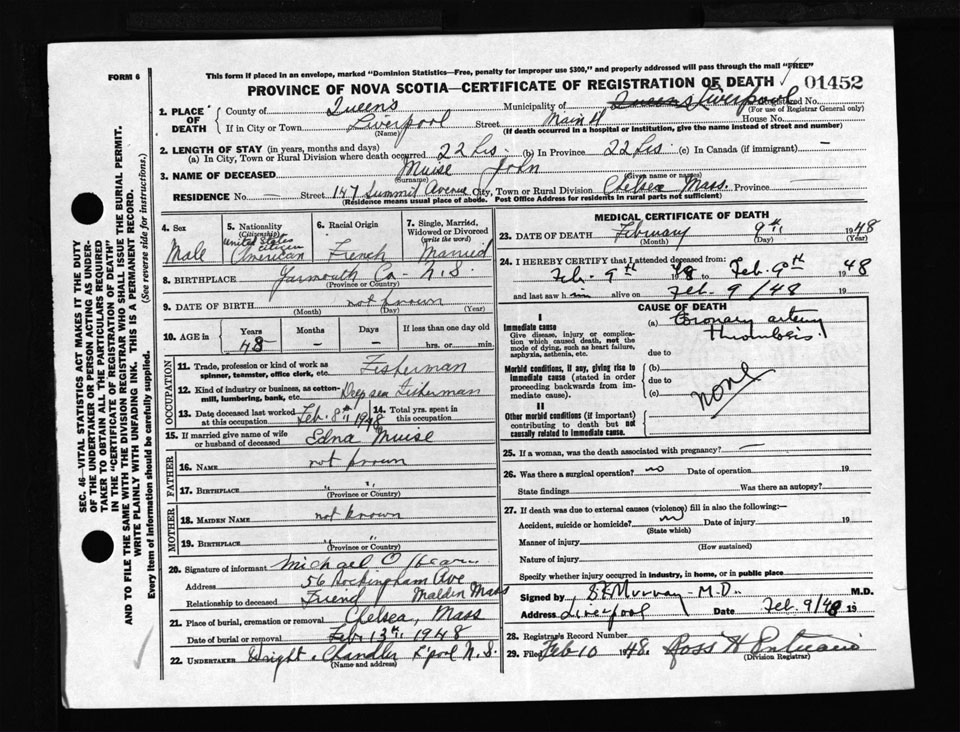 FORM 6
This form if placed in an envelope, marked "Dominion Statistics—Free, penalty for improper use $300," and properly addressed will pass through the mail "FREE"
PROVINCE OF NOVA SCOTIA—CERTIFICATE OF REGISTRATION OF DEATH
01452
1. PLACE OF DEATH
County of Queens Municipality of Queens Liverpool Registered No.
(For use of Registrar General only)
If in City or Town Liverpool Street Main St House No.
(Name) (If death occurred in a hospital or institution, give the name instead of street and number)
2. LENGTH OF STAY (in years, months and days)
(a) In City, Town or Rural Division where death occurred 22 (b) In Province 22 (c) In Canada (if immigrant) —
3. NAME OF DECEASED Muise John
(Surname) (Given name or names)
RESIDENCE No. — Street 147 Summit Avenue City, Town or Rural Division Chelsea Mass. Province —
(Residence means usual place of abode. Post Office Address for residents in rural parts not sufficient)
4. Sex
Male
5. Nationality (Citizenship)
United States citizen
American
6. Racial Origin
French
7. Single, Married, Widowed or Divorced (write the word)
Married
8. BIRTHPLACE Yarmouth Co — N.S.
(Province or Country)
9. DATE OF BIRTH not known
(Month) (Day) (Year)
10. AGE in
Years Months Days If less than one day old
48 — — hrs. or min.
OCCUPATION
11. Trade, profession or kind of work as spinner, teamster, office clerk, etc. Fisherman
12. Kind of industry or business, as cotton-mill, lumbering, bank, etc. Deep sea Fisherman
13. Date deceased last worked at this occupation Feb. 8th 1948
14. Total yrs. spent in this occupation
15. If married give name of wife or husband of deceased Edna Muise
FATHER
16. NAME not known
17. BIRTHPLACE " "
(Province or Country)
MOTHER
18. MAIDEN NAME not known
19. BIRTHPLACE " "
(Province or Country)
20. Signature of informant Michael O'Hearn
Address 56 Rockingham Ave
Malden Mass
Relationship to deceased Friend
21. Place of burial, cremation or removal Chelsea, Mass
Date of burial or removal Feb. 13th, 1948
22. UNDERTAKER Wright & Chandler L'pool N.S.
(Name and address)
MEDICAL CERTIFICATE OF DEATH
23. DATE OF DEATH February 9th 1948
(Month) (Day) (Year)
24. I HEREBY CERTIFY that I attended deceased from:
Feb. 9th 1948 to Feb. 9th 1948
and last saw him alive on Feb. 9/48 19
CAUSE OF DEATH
I
Immediate cause
Give disease, injury or complication which caused death, not the mode of dying, such as heart failure, asphyxia, asthenia, etc.
(a) Coronary artery Thrombosis
due to
Morbid conditions, if any, giving rise to immediate cause (stated in order proceeding backwards from immediate cause).
(b)
due to
(c)
none
II
Other morbid conditions (if important) contributing to death but not causally related to immediate cause.
25. If a woman, was the death associated with pregnancy? —
26. Was there a surgical operation? no Date of operation 19
State findings Was there an autopsy?
27. If death was due to external causes (violence) fill in also the following:—
Accident, suicide or homicide? no Date of injury 19
(State which)
Manner of injury
(How sustained)
Nature of injury
Specify whether injury occurred in industry, in home, or in public place
Signed by Murray - M.D. M.D.
Address Liverpool Date Feb. 9/48 19
28. Registrar's Record Number
29. Filed Feb 10 1948. Ross H
(Division Registrar)
SEC. 46—VITAL STATISTICS ACT MAKES IT THE DUTY OF THE UNDERTAKER OR PERSON ACTING AS UNDERTAKER TO OBTAIN ALL THE PARTICULARS REQUIRED IN THE "CERTIFICATE OF REGISTRATION OF DEATH" AND TO FILE THE SAME WITH THE DIVISION REGISTRAR WHO SHALL ISSUE THE BURIAL PERMIT.
WRITE PLAINLY WITH UNFADING INK. THIS IS A PERMANENT RECORD.
Every item of information should be carefully supplied. (See reverse side for instructions.)